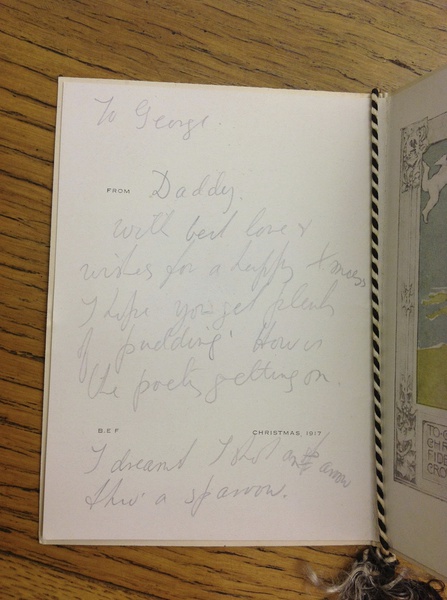 To George.
FROM Daddy.
with best love &
wishes for a happy Xmas
I hope you get plenty
of 'pudding'. How is
the poetry getting on.
B.E.F CHRISTMAS, 1917
I dreamt I shot an arrow
thro' a sparrow.
TO